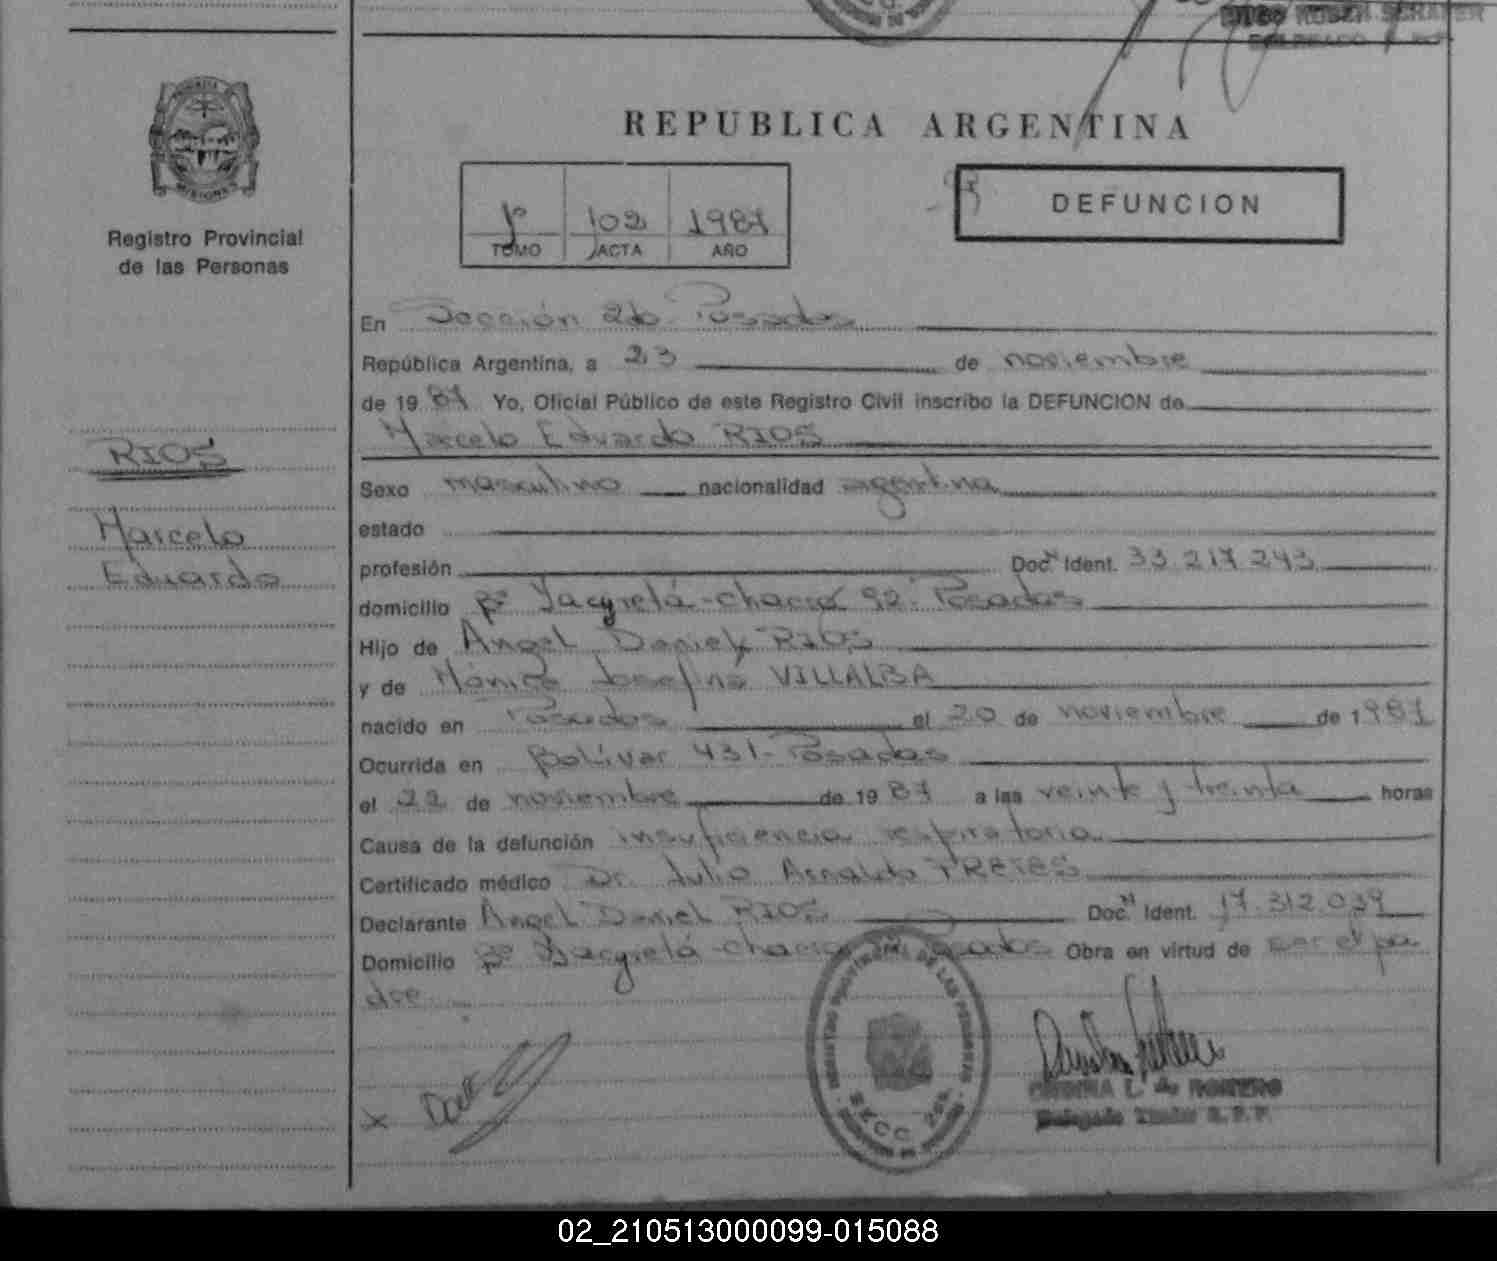 DIEGO RUBEN SCHAFER
REPUBLICA ARGENTINA
MISIONES
Registro Provincial
de las Personas
1º 102 1987
TOMO ACTA AÑO
DEFUNCION
En Sección 2da Posadas
República Argentina, a 23 de noviembre
de 1987 Yo, Oficial Público de este Registro Civil inscribo la DEFUNCION de
Marcelo Eduardo RIOS
RIOS
Marcelo
Eduardo
Sexo masculino nacionalidad argentina
estado
profesión Doc. Ident. 33.217.243
domicilio Bº Yacyretá-chacra 92-Posadas
Hijo de Angel Daniel RIOS
y de Mónica Josefina VILLALBA
nacido en Posadas el 20 de noviembre de 1987
Ocurrida en Bolívar 431-Posadas
el 22 de noviembre de 1987 a las veinte y treinta horas
Causa de la defunción insuficiencia respiratoria
Certificado médico Dr. Julio Arnaldo PRETES
Declarante Angel Daniel RIOS Doc. Ident. 17.312.039
Domicilio Bº Yacyretá-chacra Posadas Obra en virtud de ser el pa
dre
REGISTRO PROVINCIAL DE LAS PERSONAS
SECC. 2da.
L. de ROMERO
Delegado Titular R.P.P.
02_210513000099-015088